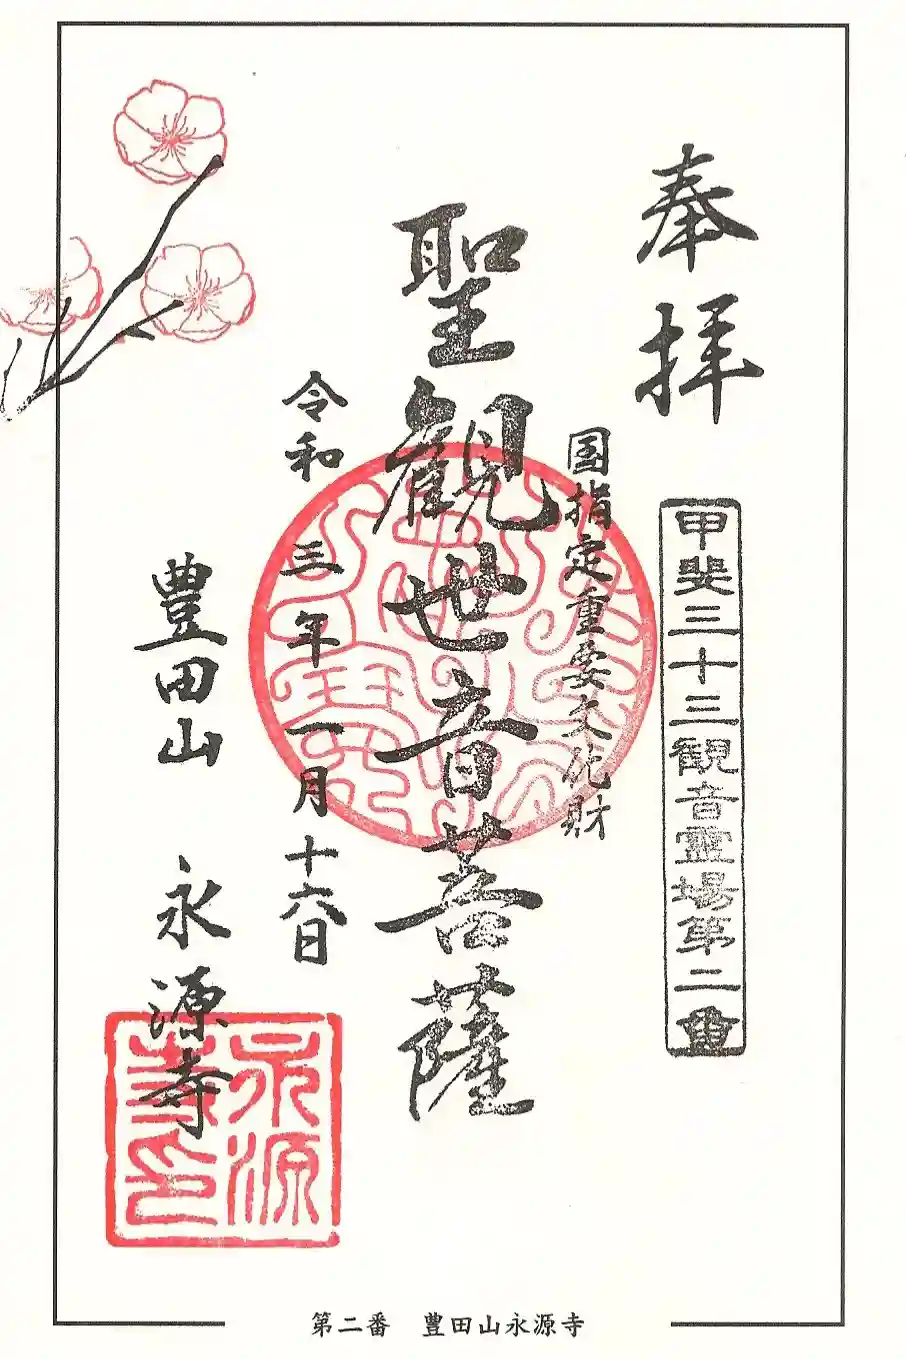 奉拝
甲斐三十三観音霊場第二番
国指定重要文化財
聖観世音菩薩
令和三年一月十六日
豊田山 永源寺
永源寺印
第二番 豊田山永源寺